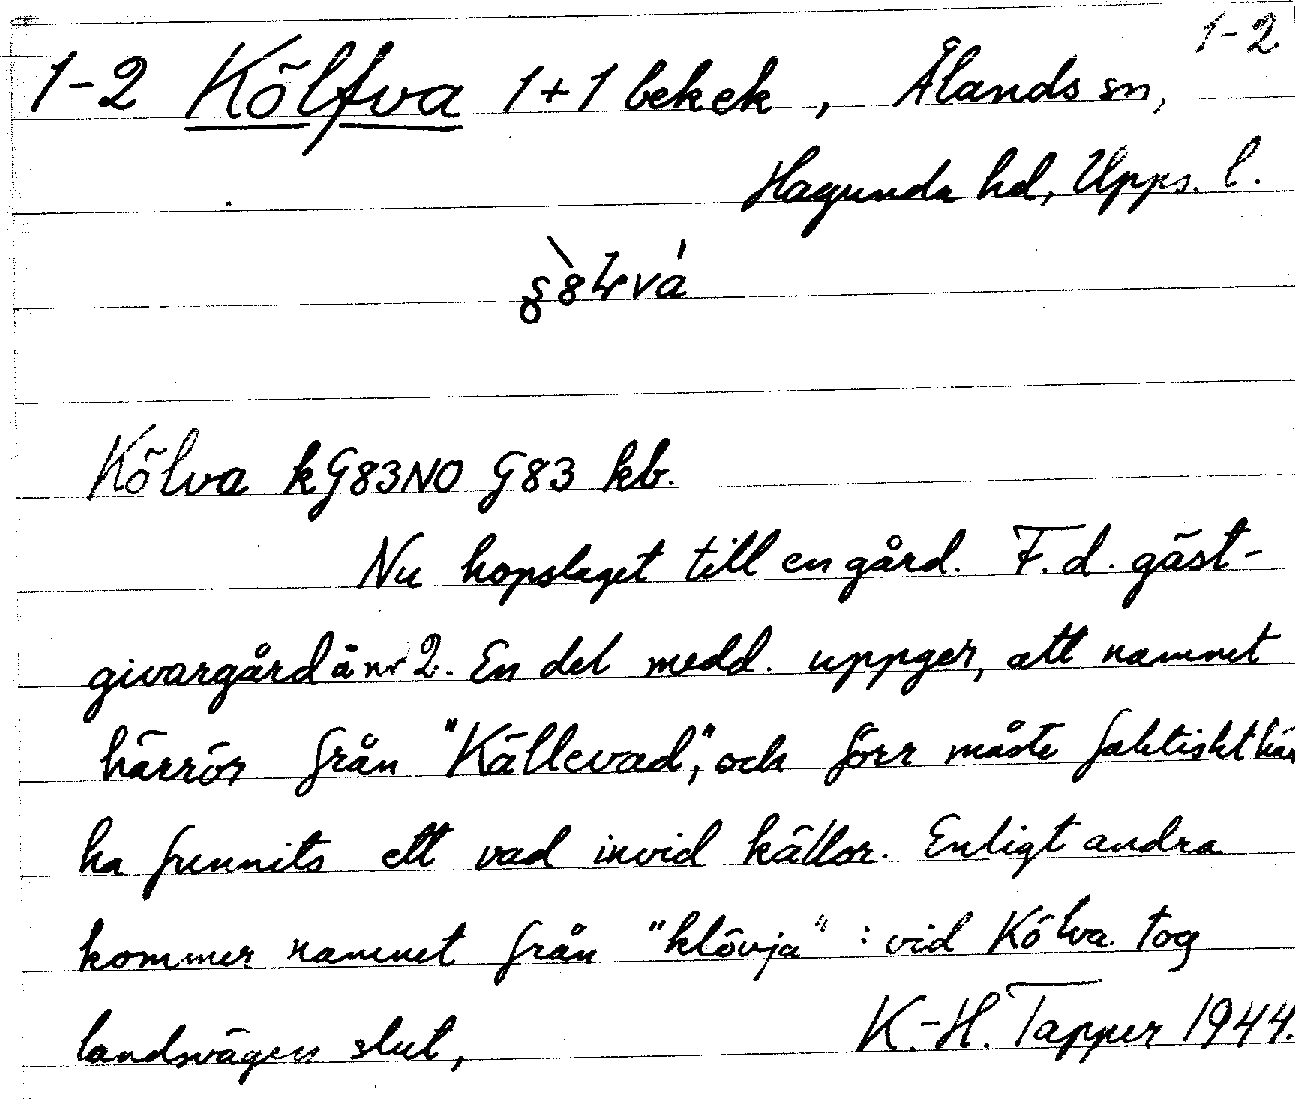 1-2
1-2 Kölfva 1+1 bekek, Ålands sn,
Hagunda hd, Upps. l.
Kölva kG83NO G83 kb.
Nu hopslaget till en gård. F.d. gäst-
givargård å nr 2. En del medd. uppger, att namnet
härrör från "Källevad", och förr måste faktiskt här
ha funnits ett vad invid källor. Enligt andra
kommer namnet från "klövja" : vid Kölva tog
landsvägen slut,
K.-H. Tapper 1944.